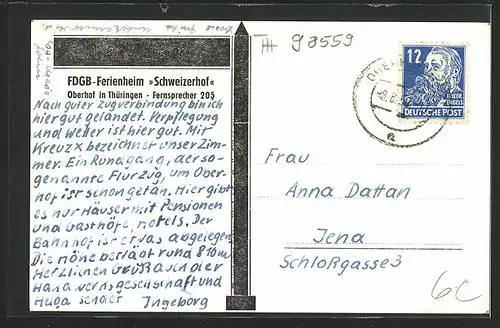 FDGB-Ferienheim »Schweizerhof«
Oberhof in Thüringen - Fernsprecher 205
Nach guter Zugverbindung bin ich
hier gut gelandet. Verpflegung
und Wetter ist hier gut. Mit
Kreuz x bezeichnet unser Zim-
mer. Ein Rundgang, der so-
genannte Flurzug, um Ober-
hof ist schon getan. Hier gibt
es nur Häuser mit Pensionen
und Gasthöfe, Hotels. Der
Bahnhof ist etwas abgelegen
Die Höhe beträgt rund 810m
Herzlichen Gruß auch der
Handwerksgesellschaft und
Helga sendet Ingeborg
98559
12
FRIEDR.
ENGELS
DEUTSCHE POST
a
Frau
Anna Dattan
Jena
Schloßgasse 3
6C